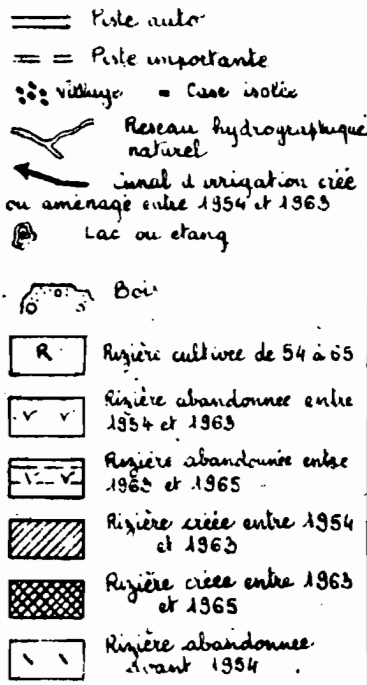 Piste auto
Piste importante
Village = Case isolée
Reseau hydrographique
naturel
canal d'irrigation créé
ou aménagé entre 1954 et 1963
Lac ou etang
Bois
R Rizière cultivée de 54 à 65
Rizière abandonnée entre
1954 et 1963
Rizière abandonnée entre
1963 et 1965
Rizière créée entre 1954
et 1963
Rizière créée entre 1963
et 1965
Rizière abandonnée
avant 1954